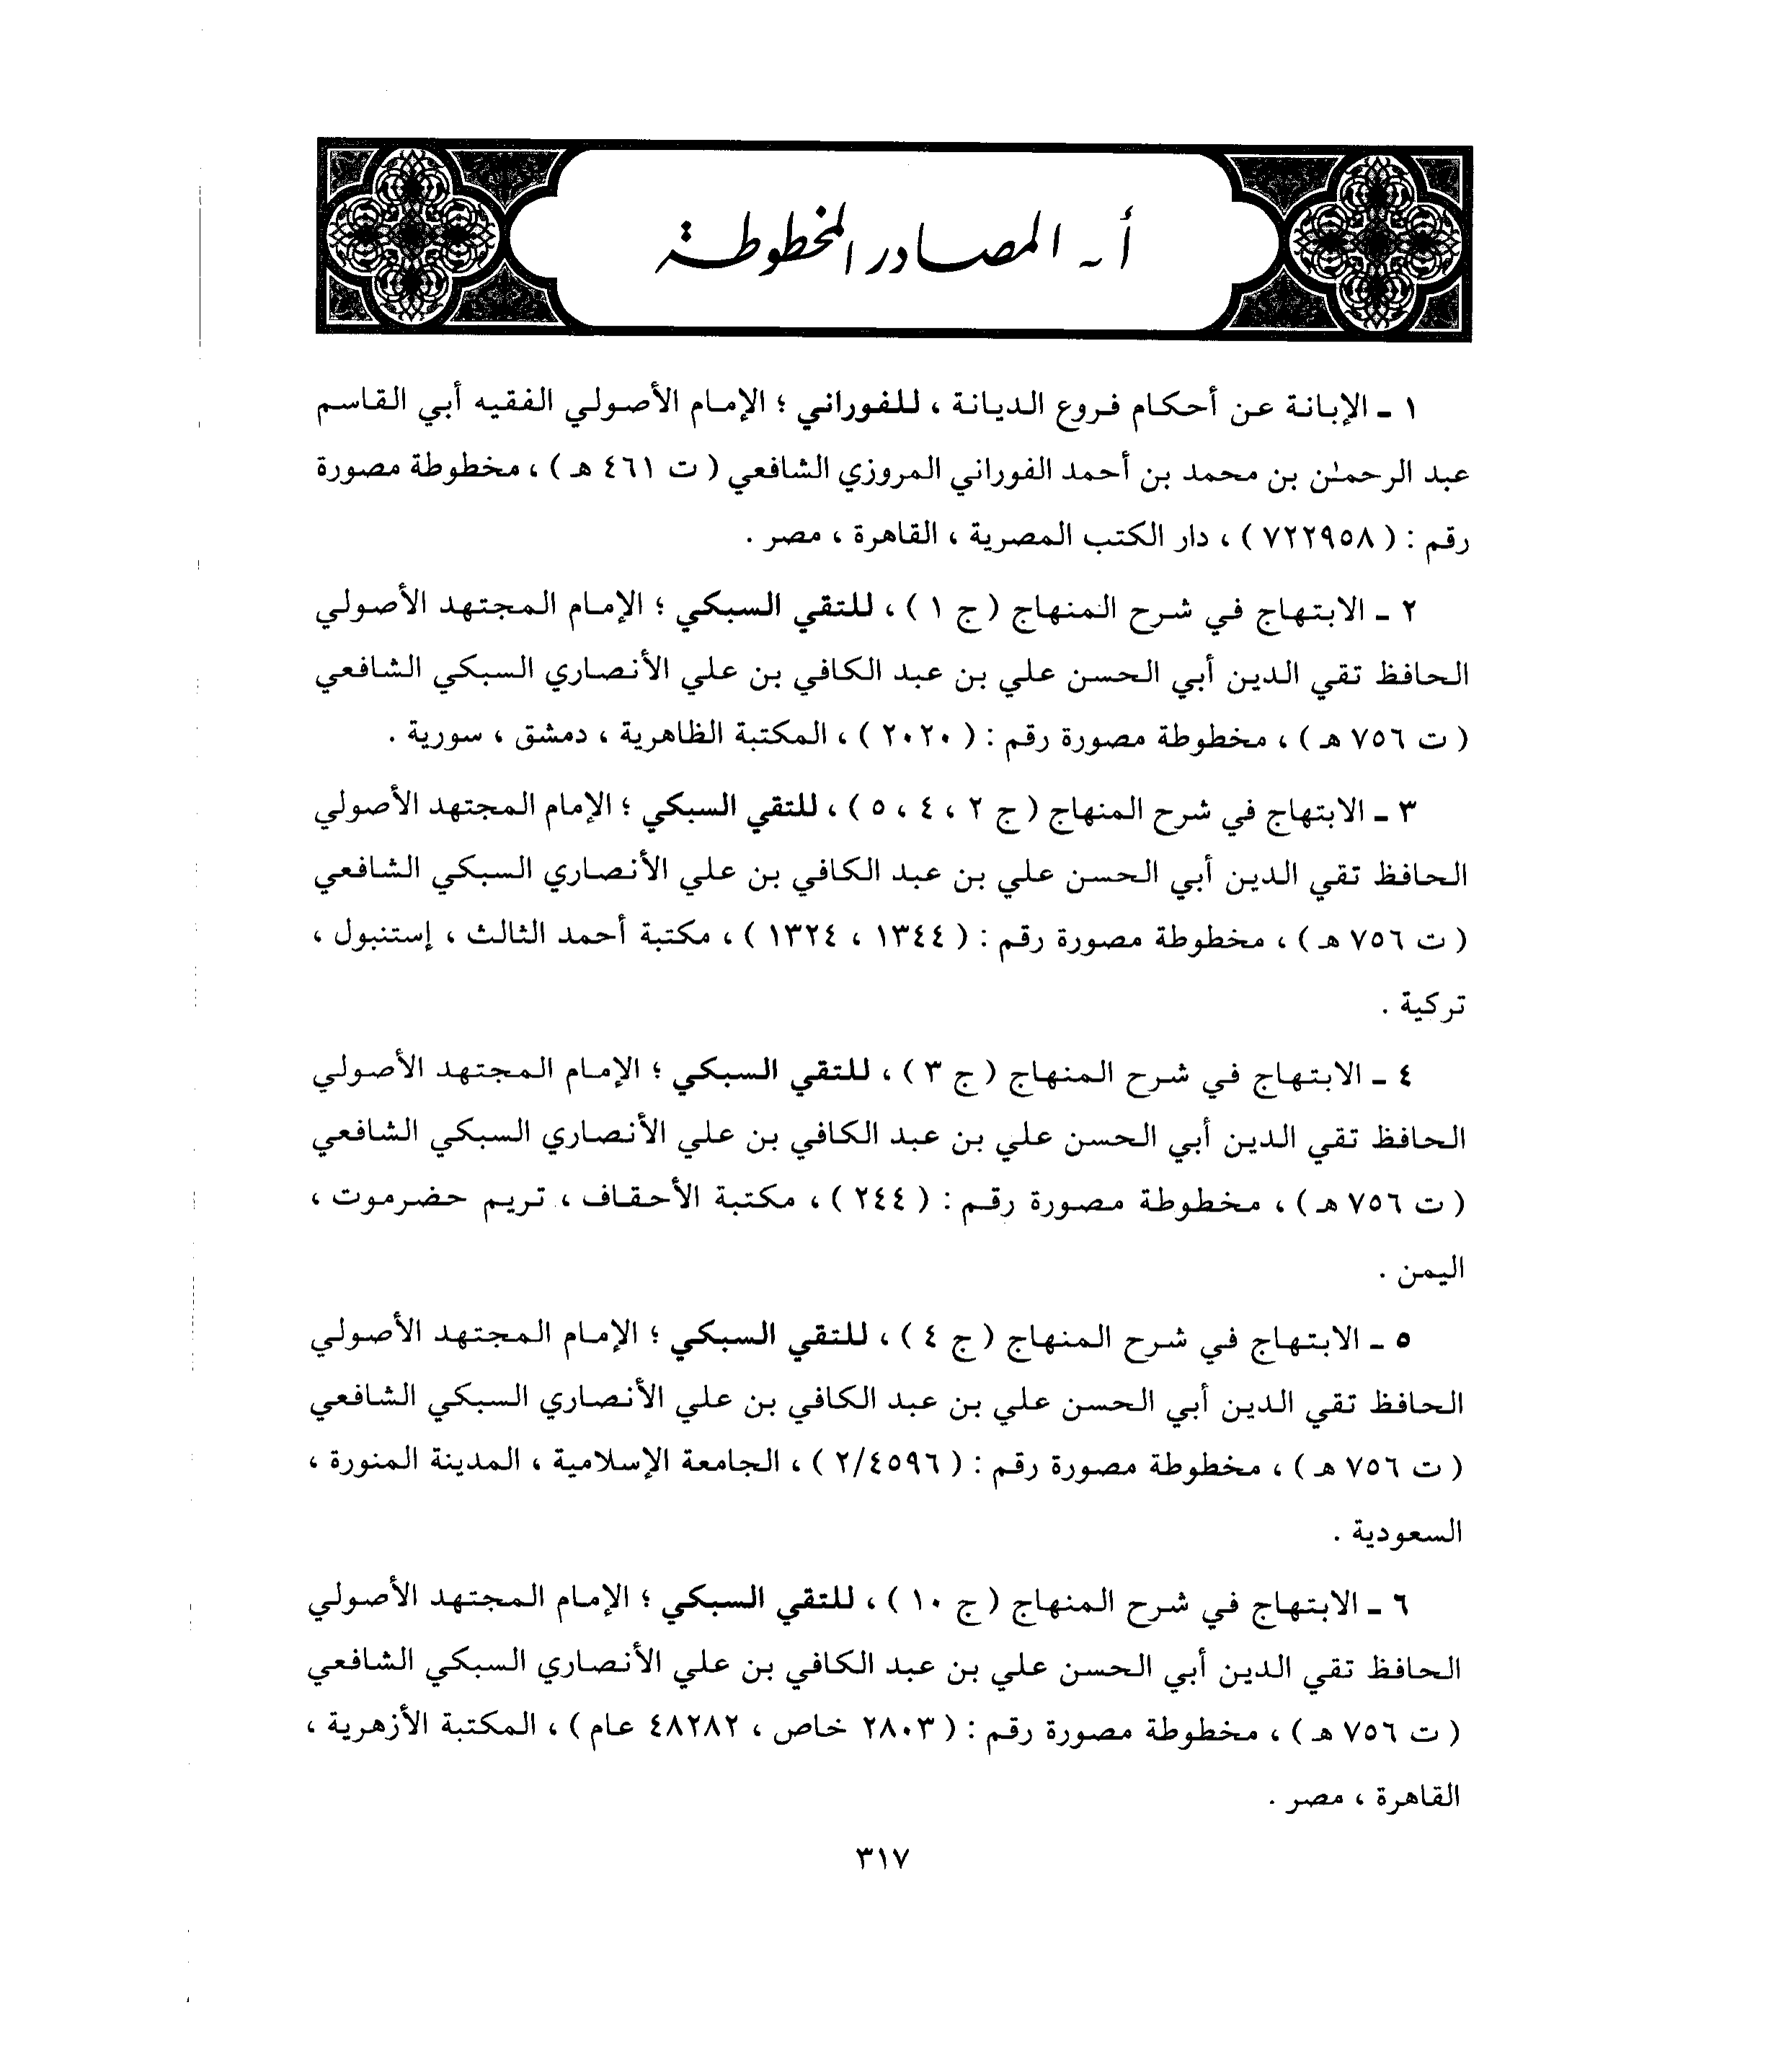 أ ـ المصادر المخطوطة
١ ـ الإبانة عن أحكام فروع الديانة ، للفوراني ؛ الإمام الأصولي الفقيه أبي القاسم
عبد الرحمـٰن بن محمد بن أحمد الفوراني المروزي الشافعي ( ت ٤٦١ هـ ) ، مخطوطة مصورة
رقم : ( ٧٢٢٩٥٨ ) ، دار الكتب المصرية ، القاهرة ، مصر .
٢ ـ الابتهاج في شرح المنهاج ( ج ١ ) ، للتقي السبكي ؛ الإمام المجتهد الأصولي
الحافظ تقي الدين أبي الحسن علي بن عبد الكافي بن علي الأنصاري السبكي الشافعي
( ت ٧٥٦ هـ ) ، مخطوطة مصورة رقم : ( ٢٠٢٠ ) ، المكتبة الظاهرية ، دمشق ، سورية .
٣ ـ الابتهاج في شرح المنهاج ( ج ٢ ، ٤ ، ٥ ) ، للتقي السبكي ؛ الإمام المجتهد الأصولي
الحافظ تقي الدين أبي الحسن علي بن عبد الكافي بن علي الأنصاري السبكي الشافعي
( ت ٧٥٦ هـ ) ، مخطوطة مصورة رقم : ( ١٣٤٤ ، ١٣٢٤ ) ، مكتبة أحمد الثالث ، إستنبول ،
تركية .
٤ ـ الابتهاج في شرح المنهاج ( ج ٣ ) ، للتقي السبكي ؛ الإمام المجتهد الأصولي
الحافظ تقي الدين أبي الحسن علي بن عبد الكافي بن علي الأنصاري السبكي الشافعي
( ت ٧٥٦ هـ ) ، مخطوطة مصورة رقم : ( ٢٤٤ ) ، مكتبة الأحقاف ، تريم حضرموت ،
اليمن .
٥ ـ الابتهاج في شرح المنهاج ( ج ٤ ) ، للتقي السبكي ؛ الإمام المجتهد الأصولي
الحافظ تقي الدين أبي الحسن علي بن عبد الكافي بن علي الأنصاري السبكي الشافعي
( ت ٧٥٦ هـ ) ، مخطوطة مصورة رقم : ( ٢/٤٥٩٦ ) ، الجامعة الإسلامية ، المدينة المنورة ،
السعودية .
٦ ـ الابتهاج في شرح المنهاج ( ج ١٠ ) ، للتقي السبكي ؛ الإمام المجتهد الأصولي
الحافظ تقي الدين أبي الحسن علي بن عبد الكافي بن علي الأنصاري السبكي الشافعي
( ت ٧٥٦ هـ ) ، مخطوطة مصورة رقم : ( ٢٨٠٣ خاص ، ٤٨٢٨٢ عام ) ، المكتبة الأزهرية ،
القاهرة ، مصر .
٣١٧